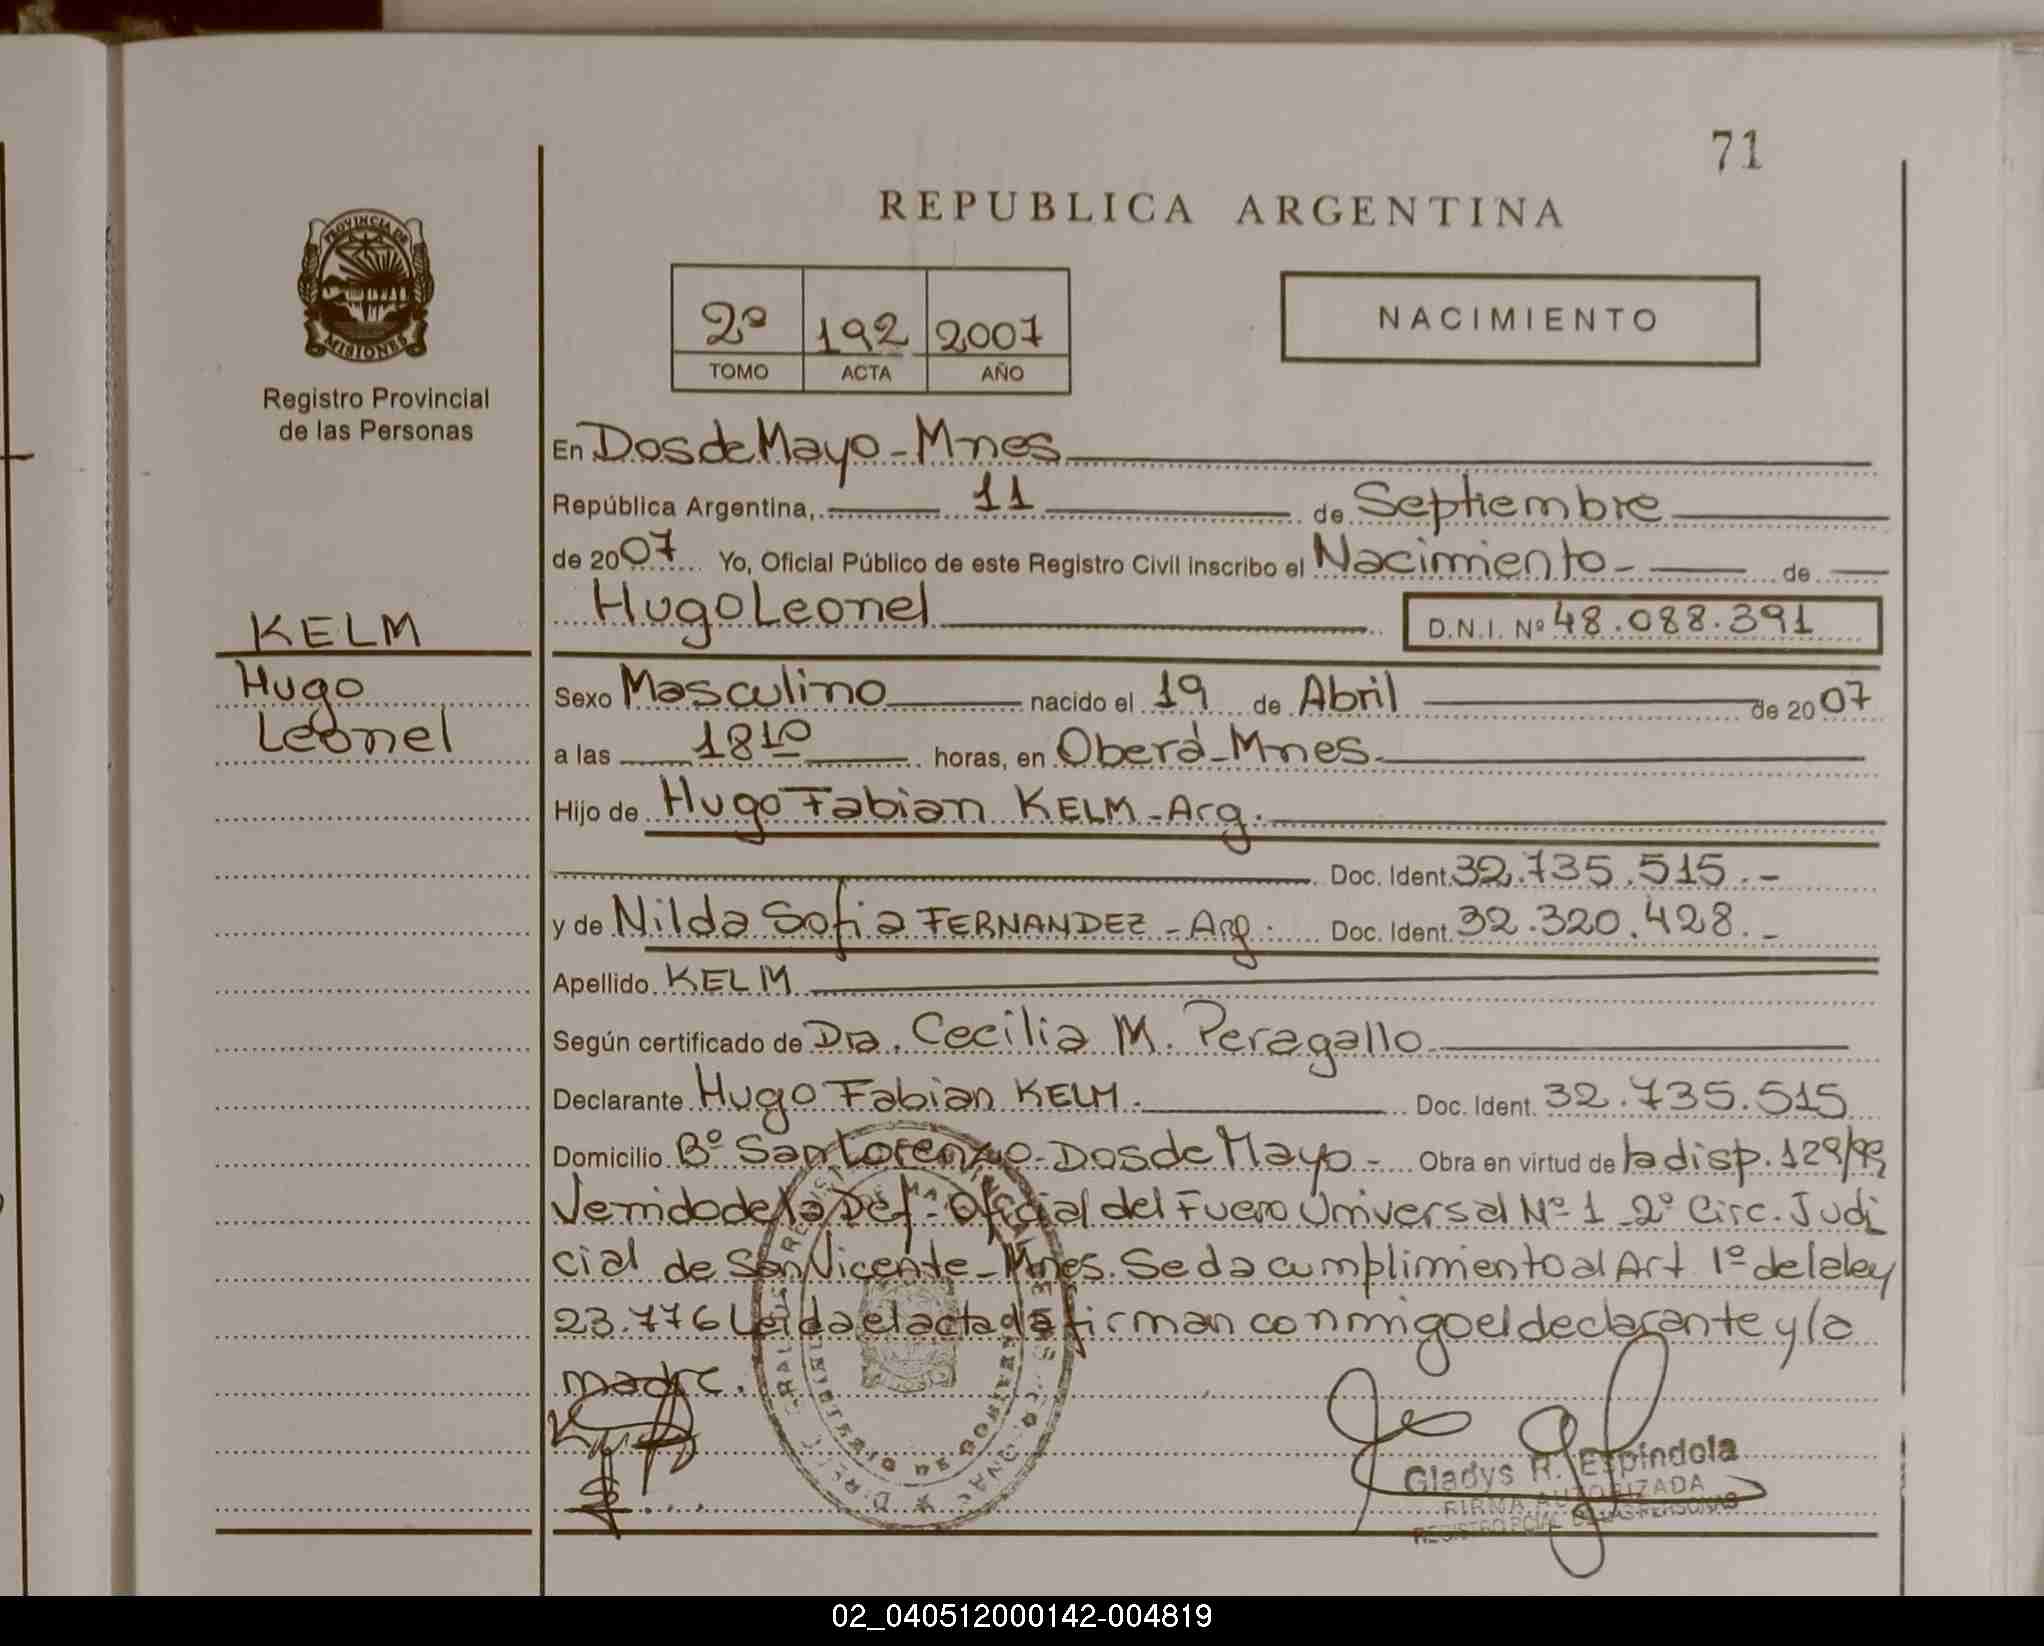 71
REPUBLICA ARGENTINA
PROVINCIA DE
MISIONES
Registro Provincial
de las Personas
2º 192 2007
TOMO ACTA AÑO
NACIMIENTO
En Dos de Mayo - Mnes
República Argentina, 11 de Septiembre
de 2007 Yo, Oficial Público de este Registro Civil inscribo el Nacimiento - de
Hugo Leonel D.N.I. Nº 48.088.391
KELM
Hugo
Leonel
Sexo Masculino nacido el 19 de Abril de 2007
a las 18 10 horas, en Oberá - Mnes.
Hijo de Hugo Fabian KELM - Arg.
Doc. Ident. 32.735.515.-
y de Nilda Sofia FERNANDEZ - Arg. Doc. Ident. 32.320.428.-
Apellido KELM
Según certificado de Dra. Cecilia M. Peragallo
Declarante Hugo Fabian KELM. Doc. Ident. 32.735.515
Domicilio Bº San Lorenzo - Dos de Mayo - Obra en virtud de la disp. 129/99
Venido de la Def. Oficial del Fuero Universal Nº 1 2º Circ. Judi
cial de San Vicente - Mnes. Se da cumplimiento al Art 1º de la ley
23.776 Leida el acta la firman conmigo el declarante y la
madre.
Gladys R. Espíndola
FIRMA AUTORIZADA
REGISTRO PCIAL DE LAS PERSONAS
02_040512000142-004819